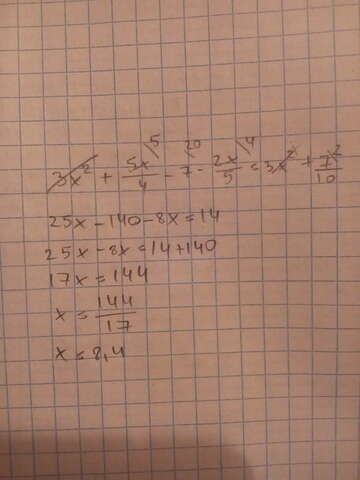 3x² + 5x/4 \5 - 7 \20 - 2x/5 \4 = 3x² + 7/10 \2
25x - 140 - 8x = 14
25x - 8x = 14 + 140
17x = 144
x = 144/17
x = 8,4